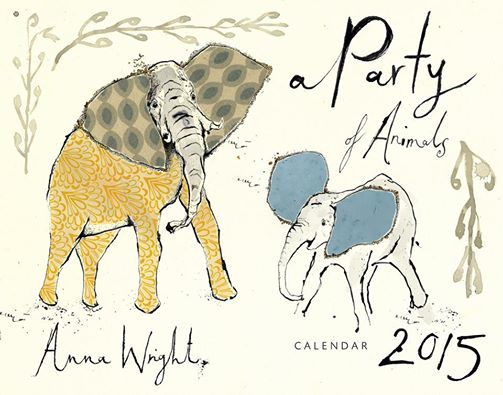 a Party
of Animals
Anna Wright.
CALENDAR 2015